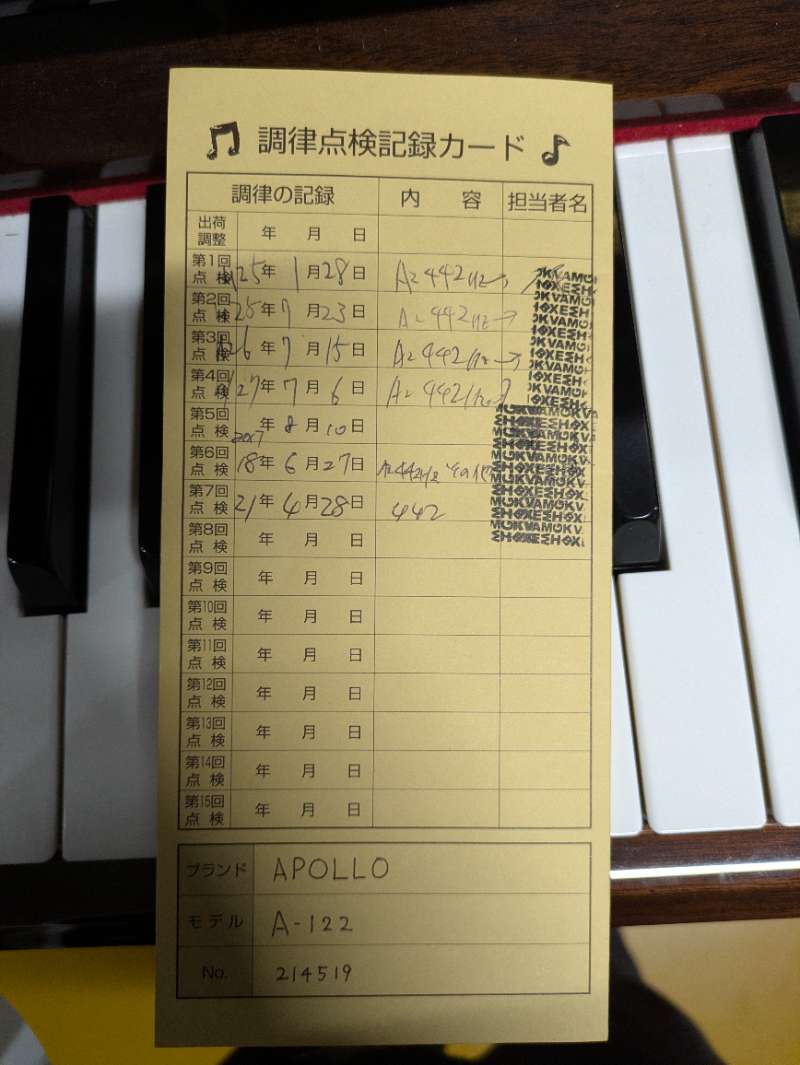 調律点検記録カード
調律の記録 内 容 担当者名
出荷調整 年 月 日
第1回点検 25年 1月28日 A=442Hz→
第2回点検 25年 7月23日 A=442Hz→
第3回点検 26年 7月15日 A=442Hz→
第4回点検 27年 7月 6日 A=442Hz
第5回点検 2017年 8月10日
第6回点検 18年 6月27日 A=442Hz その他
第7回点検 21年 4月28日 442
第8回点検 年 月 日
第9回点検 年 月 日
第10回点検 年 月 日
第11回点検 年 月 日
第12回点検 年 月 日
第13回点検 年 月 日
第14回点検 年 月 日
第15回点検 年 月 日
ブランド APOLLO
モデル A-122
No. 214519